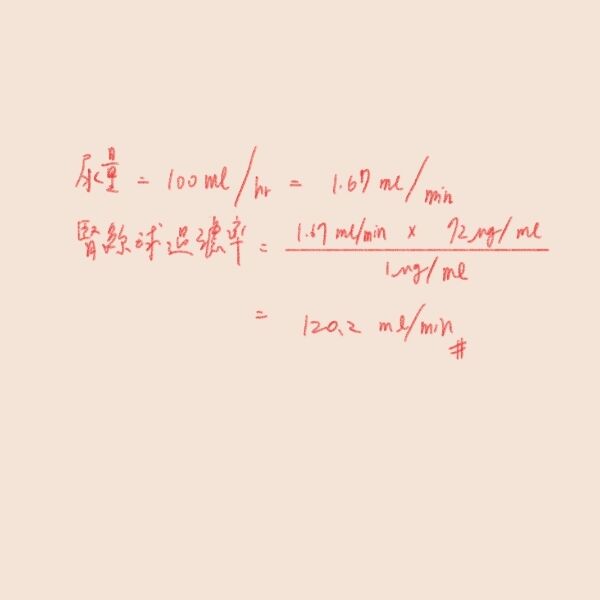 尿量 = 100 ml/hr = 1.67 ml/min
腎絲球過濾率 = 1.67 ml/min × 72 mg/ml
1 mg/ml
= 120.2 ml/min #